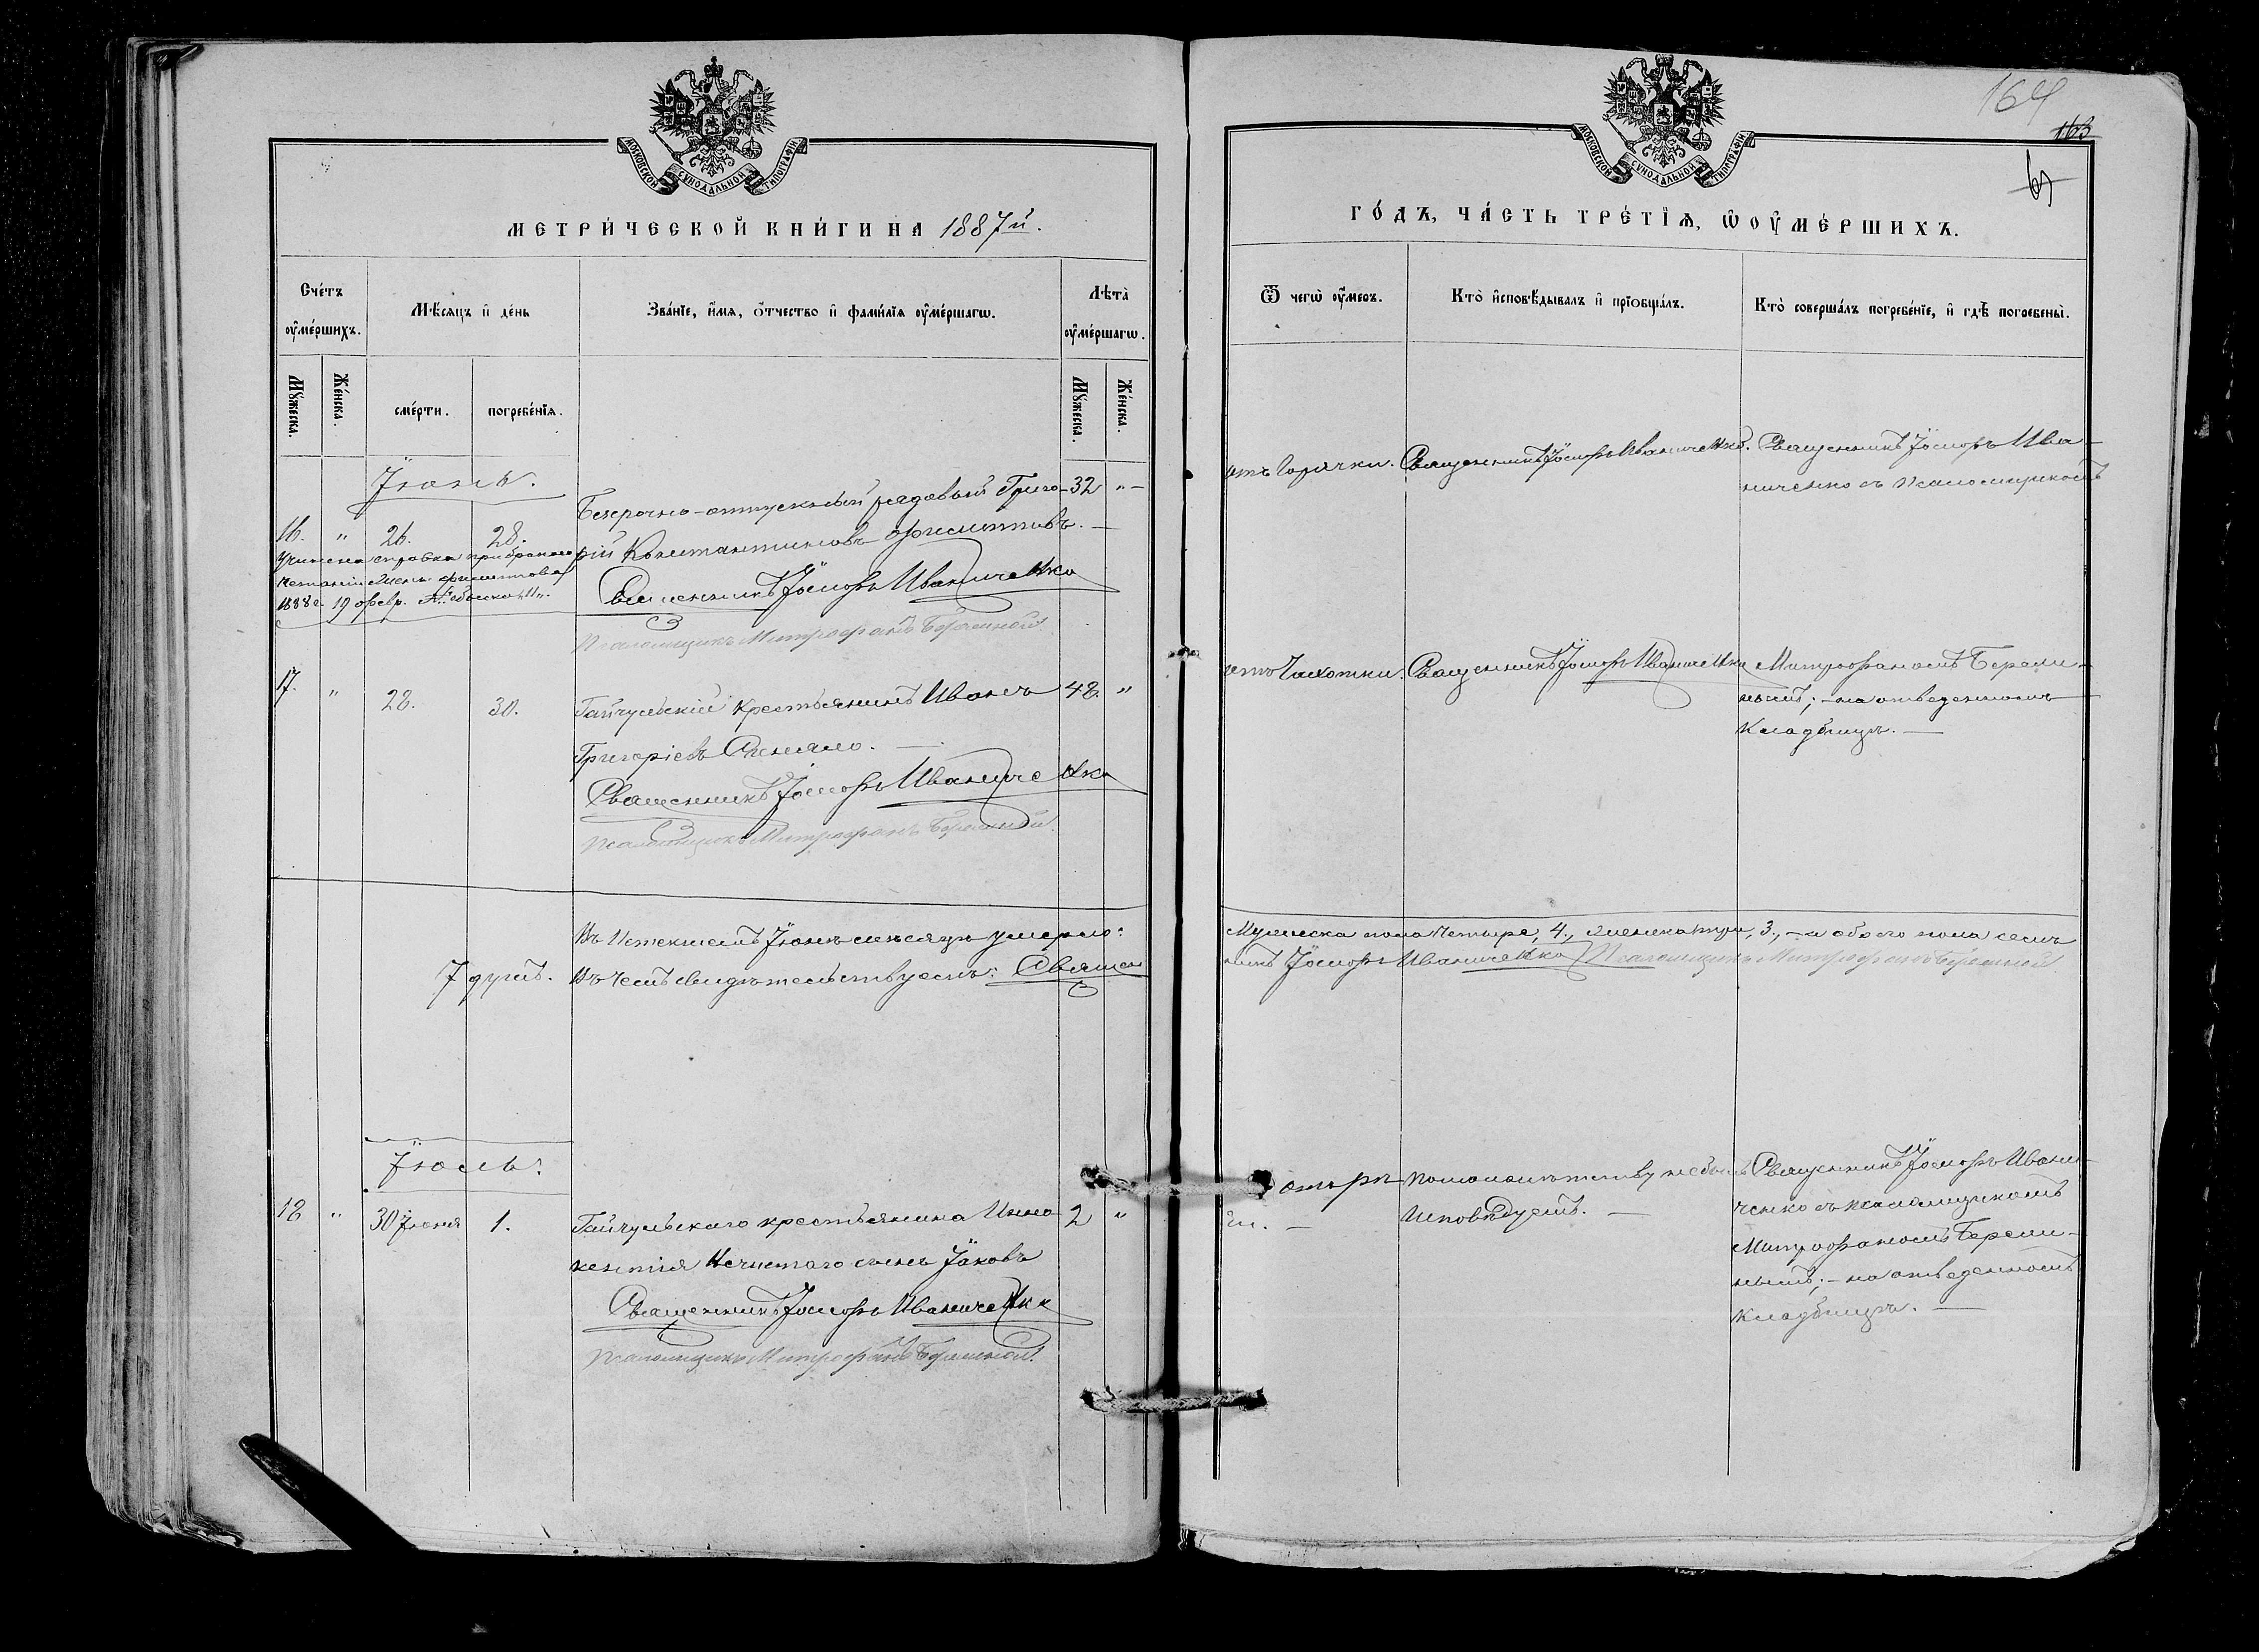 МОСКОВСКОЙ СѴНОДАЛЬНОЙ ТИПОГРАФІИ
МЕТРИ́ЧЕСКОЙ КНИ́ГИ НА 1887й.
Сче́тъ ᲂу҆ме́ршихъ.
Мѣ́сяцъ и҆ де́нь
Зва́нїе, и҆́мя, ѻ҆́тчество и҆ фами́лїя ᲂу҆ме́ршагѡ.
Лѣта̀ ᲂу҆ме́ршагѡ.
Мꙋ́жеска.
Же́нска.
сме́рти.
погребе́нїѧ.
Мꙋ́жеска.
Же́нска.
Іюнь.
16. " 26. 28.
Безсрочно-отпускный рядовый Григо- 32 "
рій Константиновъ
Священникъ Іосифъ Иваниченко
Псаломщикъ Митрофанъ
Учинена справка при брако
1888 г. 19 февр.
17. " 28. 30.
Гайчульскій крестьянинъ Иванъ 48. "
Григоріевъ
Священникъ Іосифъ Иваниченко
Псаломщикъ Митрофанъ
7 душъ.
Въ истекшемъ Іюнѣ мѣсяцѣ умерло:
Въ чемъ свидѣтельствуемъ: Священ
Іюль.
18 " 30 Іюня 1.
Гайчульскаго крестьянина Инно- 2 "
кентія Нечистаго сынъ Іаковъ
Священникъ Іосифъ Иваниченко
Псаломщикъ Митрофанъ
164
163
МОСКОВСКОЙ СѴНОДАЛЬНОЙ ТИПОГРАФІИ
ГО́ДЪ, ЧА́СТЬ ТРЕ́ТЇѦ, Ѡ҆ ОУ҆МЕ́РШИХЪ.
Ѿ чегѡ̀ ᲂу҆́меръ.
Кто̀ и҆сповѣ́дывалъ и҆ прїобща́лъ.
Кто̀ соверша́лъ погребе́нїе, и҆ гдѣ̀ погребены̀.
отъ Горячки.
Священникъ Іосифъ Иваниченко.
Священникъ Іосифъ Ива-
ниченко съ псаломщикомъ
отъ Чахотки.
Священникъ Іосифъ Иваниченко
Митрофаномъ Береж-
нымъ; – на отведенномъ
кладбищѣ. —
Мужеска пола четыре, 4., женска три, 3., – а обоего пола семь
никъ Іосифъ Иваниченко Псаломщикъ Митрофанъ
По малолѣтству не былъ
исповѣдуемъ. —
Священникъ Іосифъ Ивани-
ченко съ псаломщикомъ
Митрофаномъ Береж-
нымъ; – на отведенномъ
кладбищѣ. —